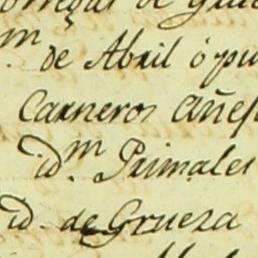 de
m. de Abril ó pu
Carneros Añej
id.m Primales
id. de Grueza